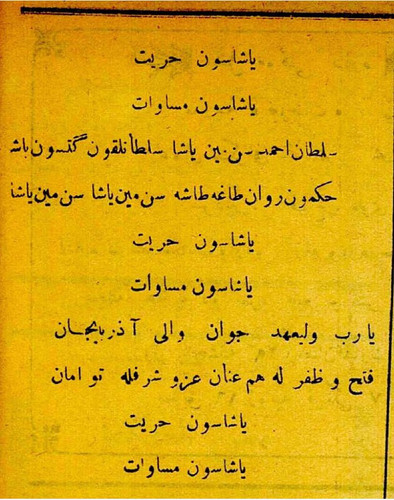 یاشاسون حریت
یاشاسون مساوات
سلطان احمد سن مین یاشا سلطانلقون گتسون باشا
حکمون روان طاغه طاشه سن مین یاشا سن مین یاشا
یاشاسون حریت
یاشاسون مساوات
یا رب ولیعهد جوان والی آذربایجان
فتح و ظفر له هم عنان عز و شرفله توامان
یاشاسون حریت
یاشاسون مساوات